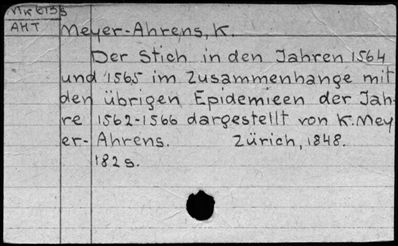 NK 6135
AHT Meyer-Ahrens, K.
Der Stich in den Jahren 1564
und 1565 im Zusammenhange mit
den übrigen Epidemieen der Jah-
re 1562-1566 dargestellt von K. Mey
er-Ahrens. Zürich, 1848.
182 s.